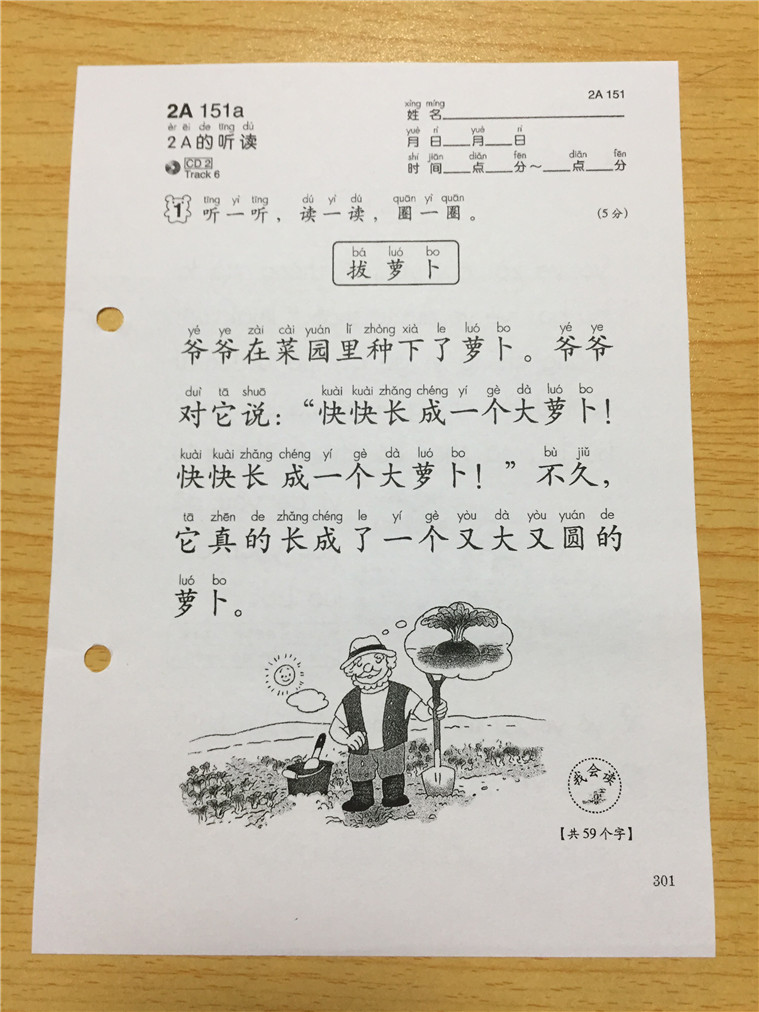 2A 151
2A 151a
èr ēi de tīng dú
2A的听读
CD 2
Track 6
xìng míng
姓名
yuè rì yuè rì
月日___月___日
shí jiān diǎn fēn diǎn fēn
时间___点___分～___点___分
tīng yì tīng dú yì dú quān yì quān
1 听一听，读一读，圈一圈。 (5分)
bá luó bo
拔萝卜
yé ye zài cài yuán lǐ zhòng xià le luó bo yé ye
爷爷在菜园里种下了萝卜。爷爷
duì tā shuō kuài kuài zhǎng chéng yí gè dà luó bo
对它说：“快快长成一个大萝卜！
kuài kuài zhǎng chéng yí gè dà luó bo bù jiǔ
快快长成一个大萝卜！”不久，
tā zhēn de zhǎng chéng le yí gè yòu dà yòu yuán de
它真的长成了一个又大又圆的
luó bo
萝卜。
我会读
【共59个字】
301